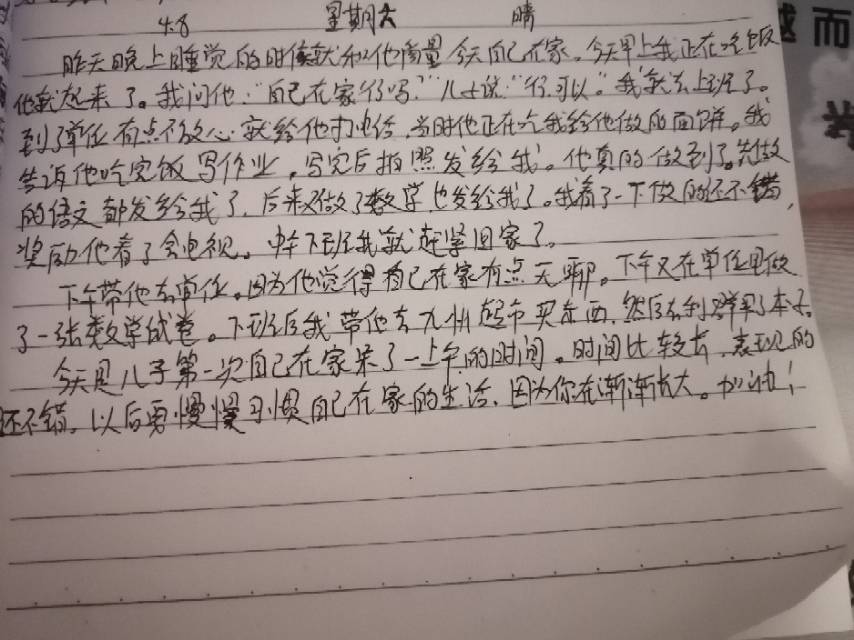 4.8 星期六 晴
昨天晚上睡觉的时候就和他商量今天自己在家。今天早上我正在吃饭
他就起来了。我问他:“自己在家行吗?”儿子说:“行,可以。”我就去上班了。
到了单位有点不放心就给他打电话,当时他正在吃我给他做的面饼。我
告诉他吃完饭写作业,写完后拍照发给我。他真的做到了。先做
的语文都发给我了,后来又做了数学也发给我了。我看了一下做的还不错,
奖励他看了会电视。中午下班我就赶紧回家了。
下午带他去单位。因为他觉得自己在家有点无聊。下午又在单位里做
了一张数学试卷。下班后我带他去九州超市买东西,然后去利群买了本子。
今天是儿子第一次自己在家呆了一上午的时间。时间比较长,表现的
还不错。以后要慢慢习惯自己在家的生活,因为你在渐渐长大。加油!
越而